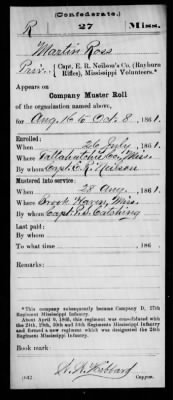 (Confederate.)
R 27 Miss.
Martin Ross
Priv., Capt. E. R. Neilson's Co. (Rayburn Rifles), Mississippi Volunteers.*
Appears on
Company Muster Roll
of the organization named above,
for Aug. 16 to Oct. 8, 1861.
Enrolled:
When 26 July, 1861.
Where Tallahatchie Co., Miss.
By whom Capt. E. R. Neilson
Mustered into service:
When 28 Aug, 1861.
Where Brook Haven, Miss.
By whom Capt. P. S. Catching
Last paid:
By whom
To what time , 186 .
Remarks:
*This company subsequently became Company D, 27th
Regiment Mississippi Infantry.
About April 9, 1865, this regiment was consolidated with
the 24th, 29th, 30th and 34th Regiments Mississippi Infantry
and formed a new regiment which was designated the
24th Regiment Mississippi Infantry.
Book mark:
(642)
Copyist.